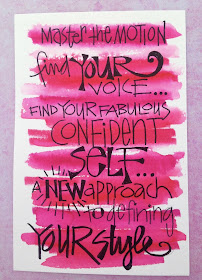 Master the MOTION
find YOUR
VOICE...
FIND YOUR FABULOUS
CONFIDENT
SELF...
A NEW approach
to defining
YOUR style